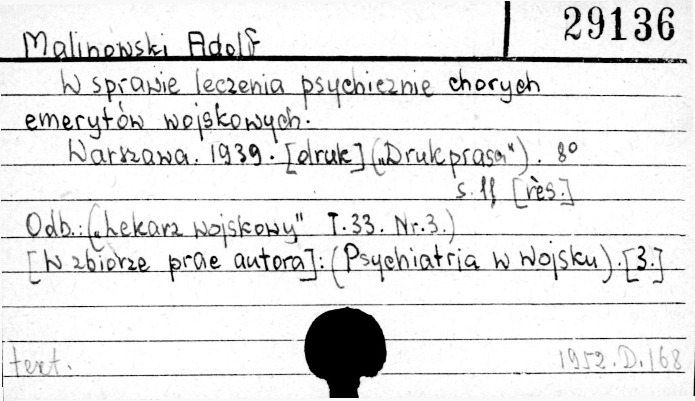 29136
Malinowski Adolf
W sprawie leczenia psychicznie chorych
emerytów wojskowych.
Warszawa. 1939. [druk] („Drukprasa"). 8°
s. 11 [rés.]
Odb.: („Lekarz wojskowy" T. 33. Nr. 3.)
[W zbiorze prac autora]: (Psychiatria w wojsku). [3.]
text.
1952.D.168